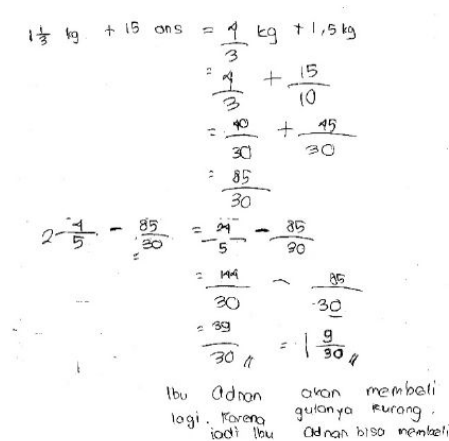 1 1/3 kg + 15 ons = 4/3 kg + 1,5 kg
= 4/3 + 15/10
= 40/30 + 45/30
= 85/30
2 4/5 - 85/30 = 24/5 - 85/30
= 144/30 - 85/30
= 39/30 = 1 9/30
Ibu Adnan akan membeli
lagi. Karena gulanya kurang.
jadi Ibu Adnan bisa membeli